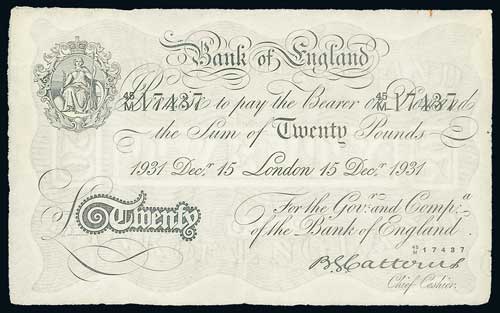 Bank of England
45/M 17437 45/M 17437
Promise to pay the Bearer on Demand
the Sum of Twenty Pounds
1931 Decr. 15 London 15 Decr. 1931
For the Govr. and Compa.
Twenty
of the Bank of England
45/M 17437
B G Catterns
Chief Cashier.